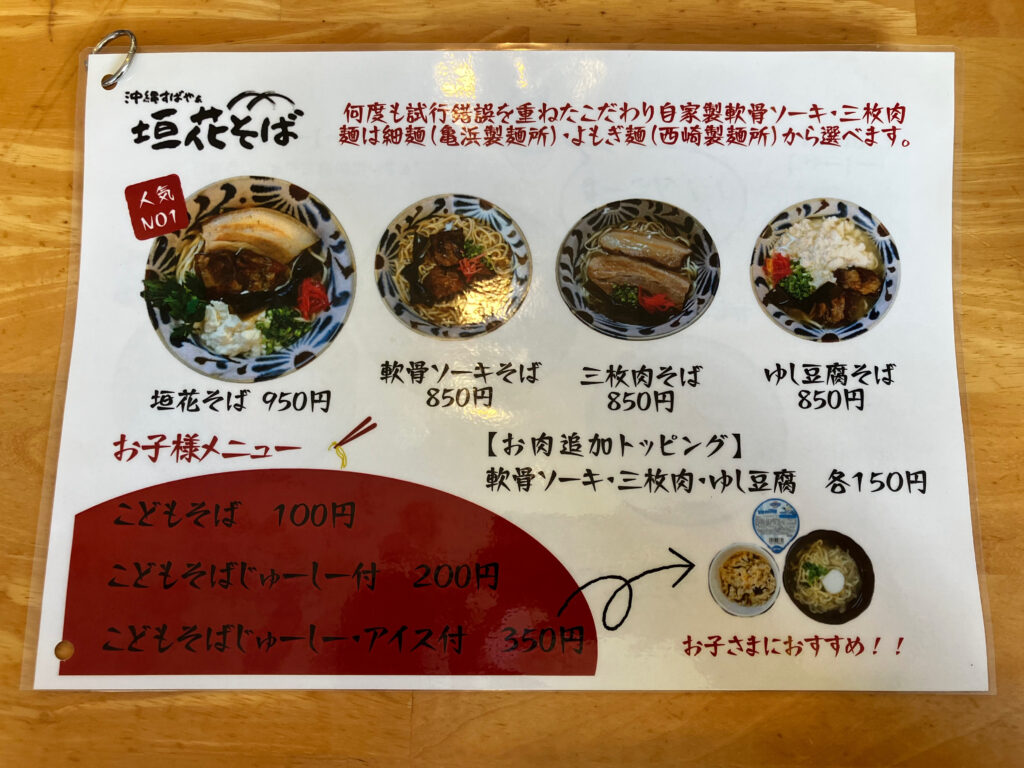 沖縄すばやぁ
垣花そば
何度も試行錯誤を重ねたこだわり自家製軟骨ソーキ・三枚肉
麺は細麺(亀浜製麺所)・よもぎ麺(西崎製麺所)から選べます。
人気
NO1
垣花そば 950円
軟骨ソーキそば
850円
三枚肉そば
850円
ゆし豆腐そば
850円
お子様メニュー
こどもそば 100円
こどもそばじゅーしー付 200円
こどもそばじゅーしー・アイス付 350円
【お肉追加トッピング】
軟骨ソーキ・三枚肉・ゆし豆腐 各150円
お子さまにおすすめ!!